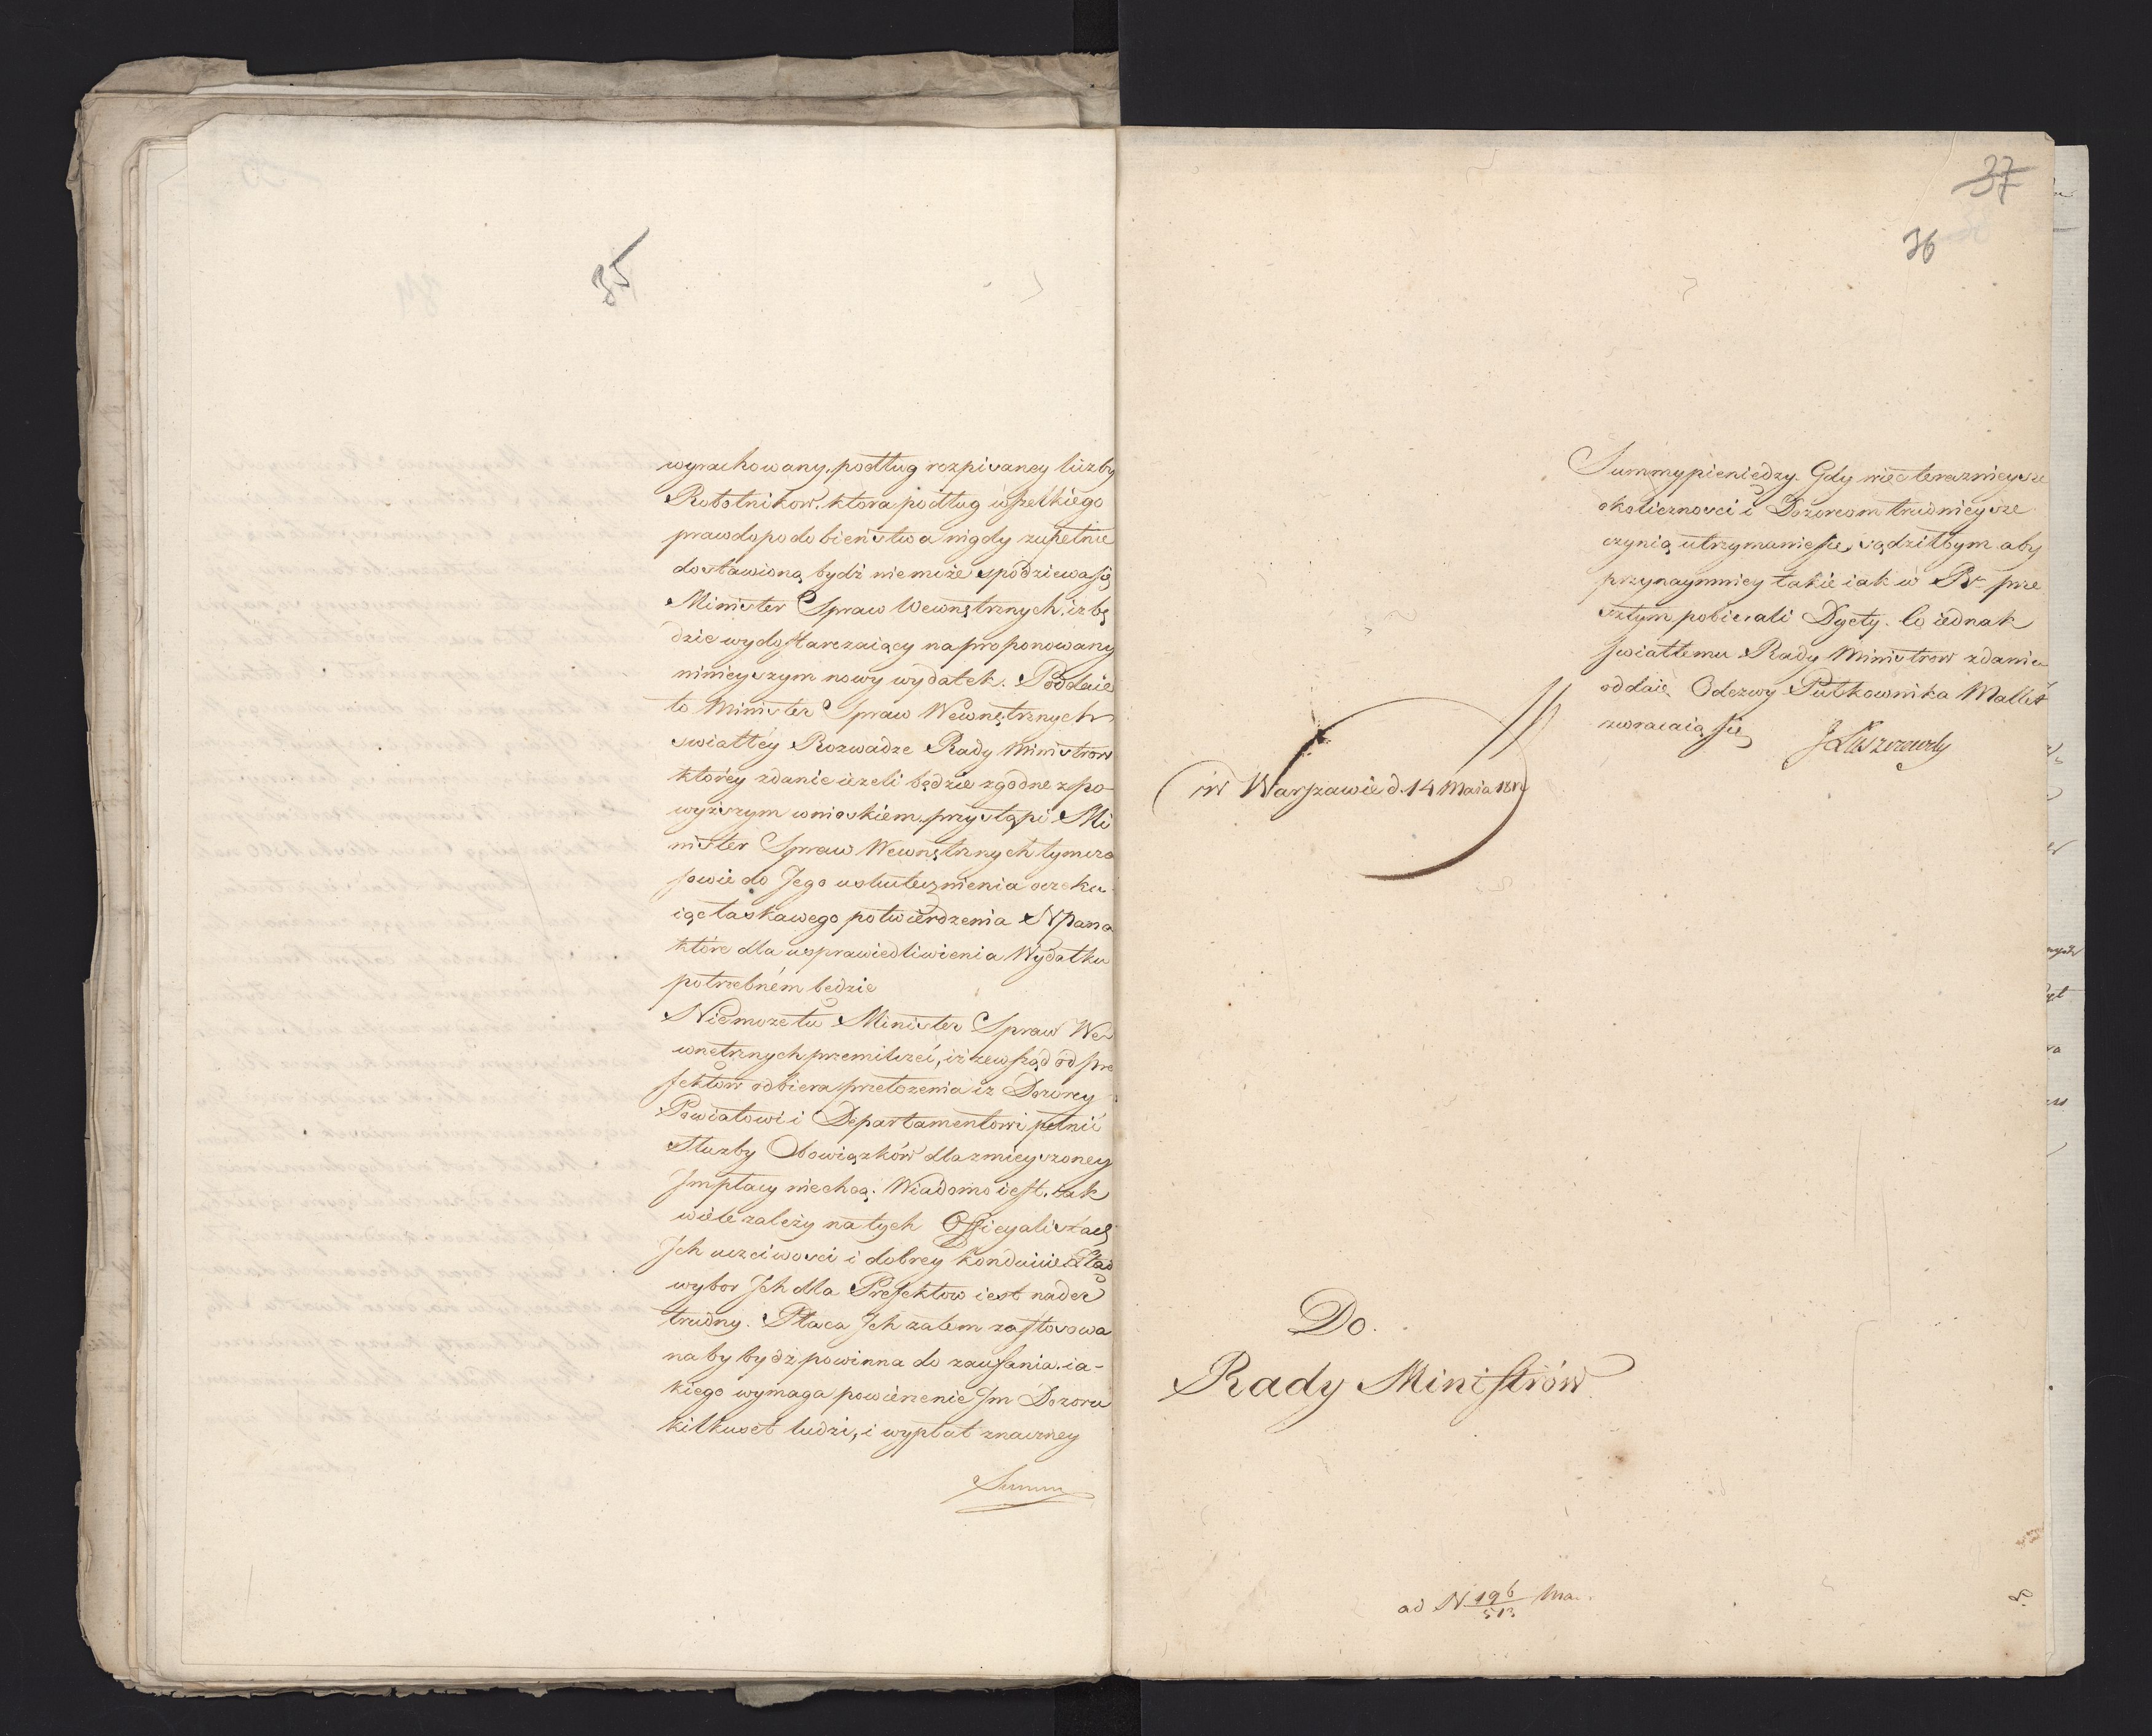 35
wyrachowany, podług rozpisaney liczby
Robotnikow, ktora podług wszelkiego
prawdopodobieństwa nigdy zupełnie
dostawioną bydź niemoże spodziewa się
Minister Spraw Wewnętrznych iż bę
dzie wydostarczaiący na proponowany
ninieyszym nowy wydatek. Poddaie
to Minister Spraw Wewnętrznych
swiatłéy Rozwadze Rady Ministrow
którey zdanie ieżeli będzie zgodne z po
wyższym wnioskiem, przystąpi Mi
nister Spraw Wewnętrznych tymcza
sowie do Jego uskutecznienia oczeku
iąc łaskawego potwierdzenia NPana
które dla usprawiedliwienia Wydatku
potrzebném będzie
Niemoże tu Minister Spraw We
wnętrznych przemilczeć, iż zewsząd od Pre
fektow odbiera przełożenia iż Dozorcy
Powiatowi i Departamentowi pełnić
Służby Obowiązków dla zmieyszoney
Jm płacy niechcą. Wiadomo iest, iak
wiele zależy na tych Officyalistach
Jch uczciwosci i dobrey konduicie Ztąd
wybor Jch dla Prefektow iest nader
trudny. Płaca Jch zatem zastosowa
na by bydź powinna do zaufania ia-
kiego wymaga powierzenie Jm Dozoru
kilkuset ludzi, i wypłat znaczney
Summy
37
36
Summy pieniędzy. Gdy więc teraznieysze
okolicznosci i Dozorcom trudnieysze
czynią utrzymanie się, sądziłbym aby
przynaymniey takie iak w Rr. prze
szłym pobierali Dyety. Co iednak
swiatłemu Rady Ministrow zdaniu
oddaię Odezwy Pułkownika Mallet
zwracaią się
J Łuszczewsky
w Warszawie d. 14 Maia 1812
Do.
Rady Ministrów
ad N 196/513 Ma.